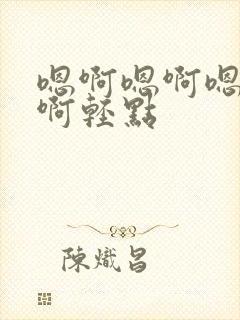 嗯啊嗯啊嗯
啊輕點
陳熾昌